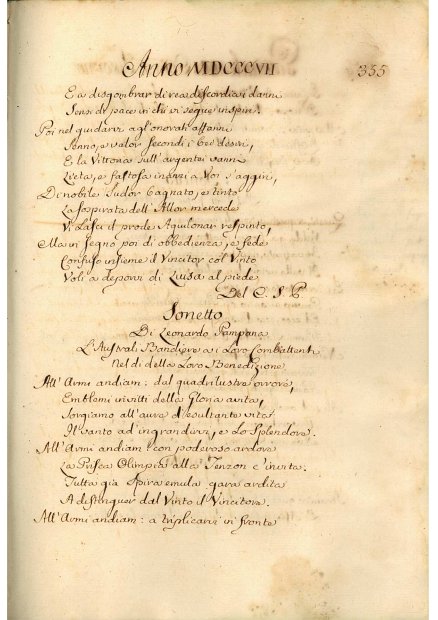 Anno MDCCCVII 355
E a disgombrar di rea discordia i danni
Sensi di pace in chi vi segue inspiri.
Poi nel guidarvi agl'onorati affanni
Senno, e valor secondi i bei desiri,
E la Vittoria sull'argentei vanni
Lieta, e fastosa innanzi a Voi s'aggiri,
Di nobile sudor bagnato, e tinto
La sospirata dell'Allor mercede
Vi lasci il prode Aquilonar respinto,
Ma in segno poi di obbedienza, e fede
Confuso insieme il Vincitor col Vinto
Voli a deporvi di Luisa al piede
Del C. S. P
Sonetto
Di Leonardo Pampana
L'Australi Bandiere a i Loro Combattenti
Nel dì della Loro Benedizione
All'Armi andiam: dal quadrilustre orrore,
Emblemi invitti della Gloria avita,
Sorgiamo all'aura d'esultante vita
Il vanto ad ingrandirvi, e lo Splendore.
All'Armi andiam: con poderoso ardore
La Prisca Olimpia alla Tenzon c'invita.
Tutta già spira emula gara ardita
A distinguer dal Vinto il Vincitore.
All'Armi andiam: a triplicarvi in fronte